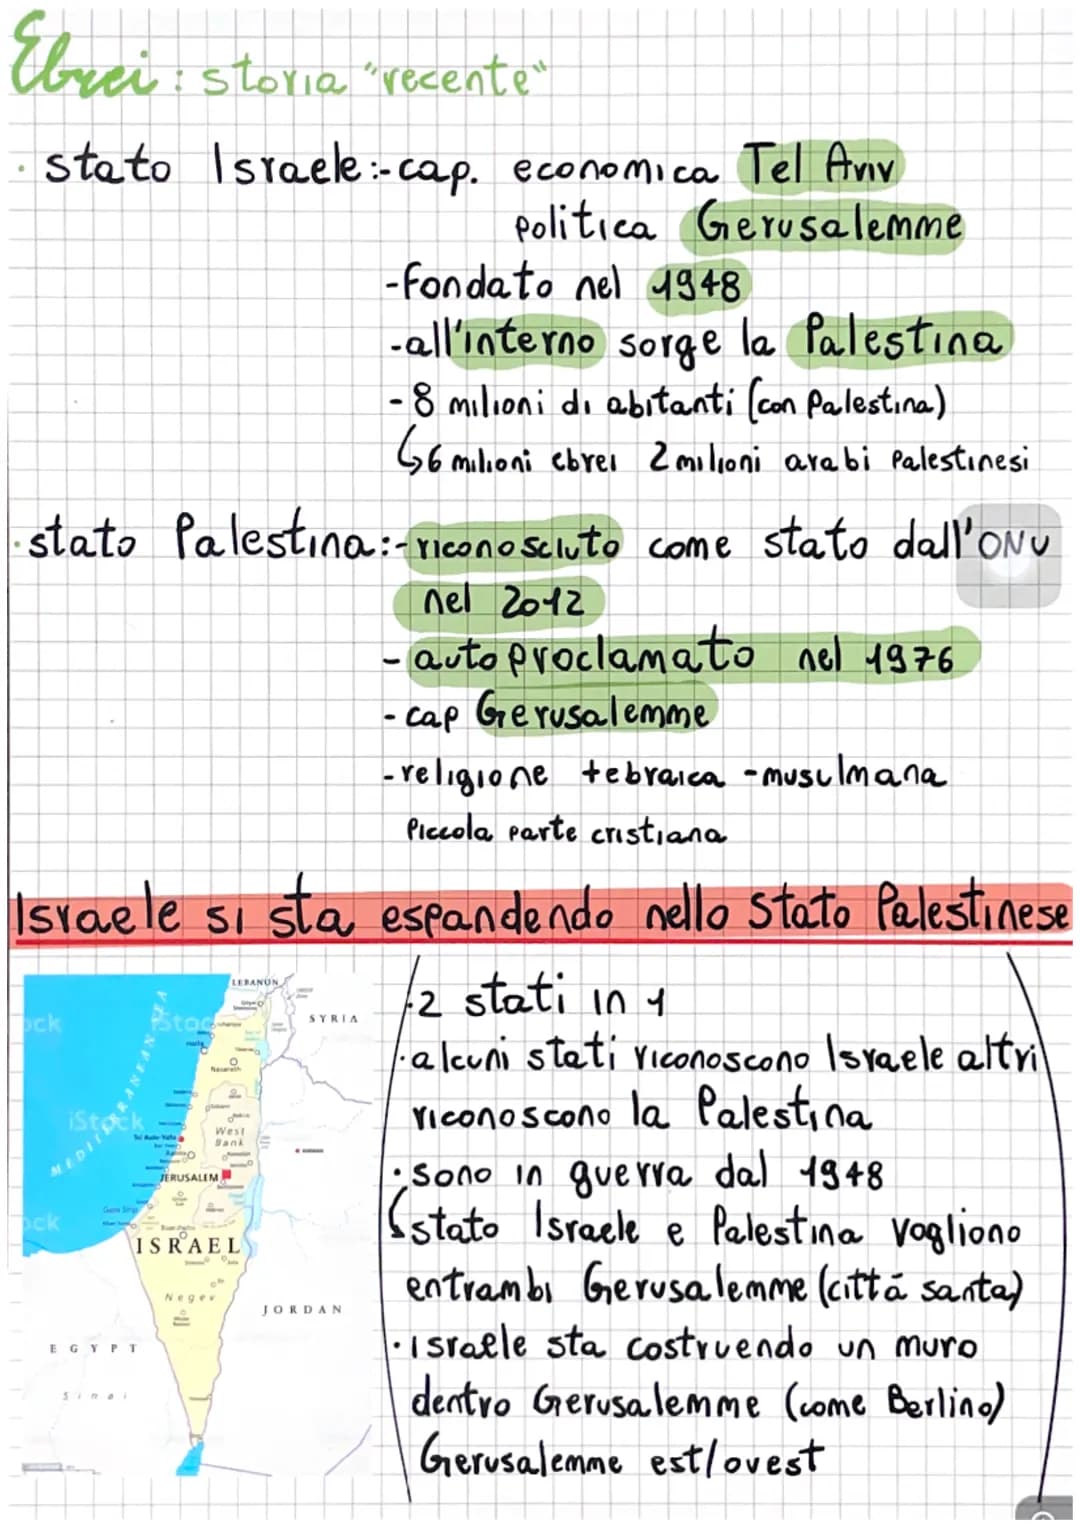 Ebrei: storia "recente"
· stato Israele:-cap. economica Tel Aviv
politica Gerusalemme
-fondato nel 1948
-all'interno sorge la Palestina
- 8 milioni di abitanti (con Palestina)
↳6 milioni ebrei 2 milioni arabi palestinesi
·stato Palestina:-riconosciuto come stato dall'ONU
nel 2012
- autoproclamato nel 1976
- cap Gerusalemme
-religione +ebraica -musulmana
Piccola parte cristiana
Israele si sta espandendo nello Stato Palestinese
·2 stati in 1
·alcuni stati riconoscono Israele altri
riconoscono la Palestina
·sono in guerra dal 1948
↳stato Israele e Palestina vogliono
entrambi Gerusalemme (città santa)
·israele sta costruendo un muro
dentro Gerusalemme (come Berlino)
Gerusalemme est/ovest
LEBANON
SYRIA
MEDITERRANEAN SEA
iStock
Nazareth
West
Bank
JERUSALEM
ISRAEL
Negev
JORDAN
EGYPT
Sinai